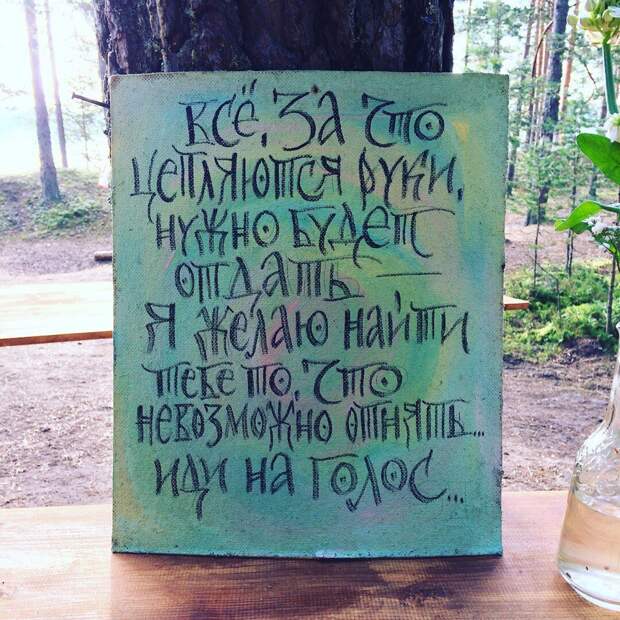 Всё, за что
цепляются руки,
нужно будет
отдать —
я желаю найти
тебе то, что
невозможно отнять...
иди на голос...